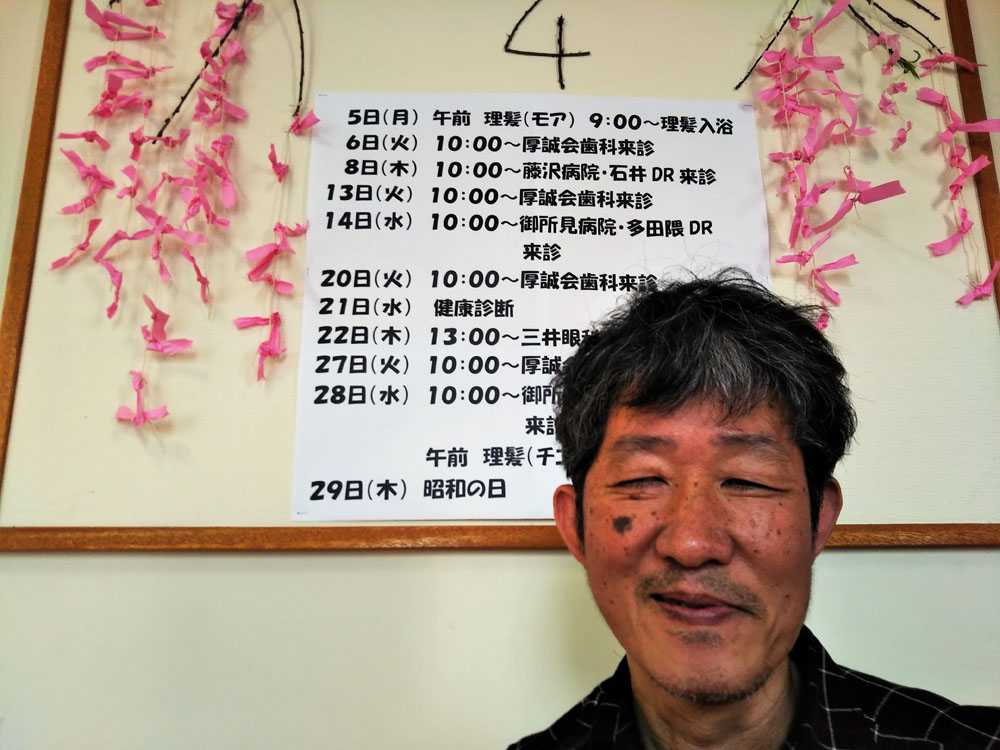 4
5日(月) 午前 理髪(モア) 9:00～理髪入浴
6日(火) 10:00～厚誠会歯科来診
8日(木) 10:00～藤沢病院・石井DR来診
13日(火) 10:00～厚誠会歯科来診
14日(水) 10:00～御所見病院・多田隈DR
来診
20日(火) 10:00～厚誠会歯科来診
21日(水) 健康診断
22日(木) 13:00～三井眼科
27日(火) 10:00～厚誠
28日(水) 10:00～御所
来診
午前 理髪(チ
29日(木) 昭和の日